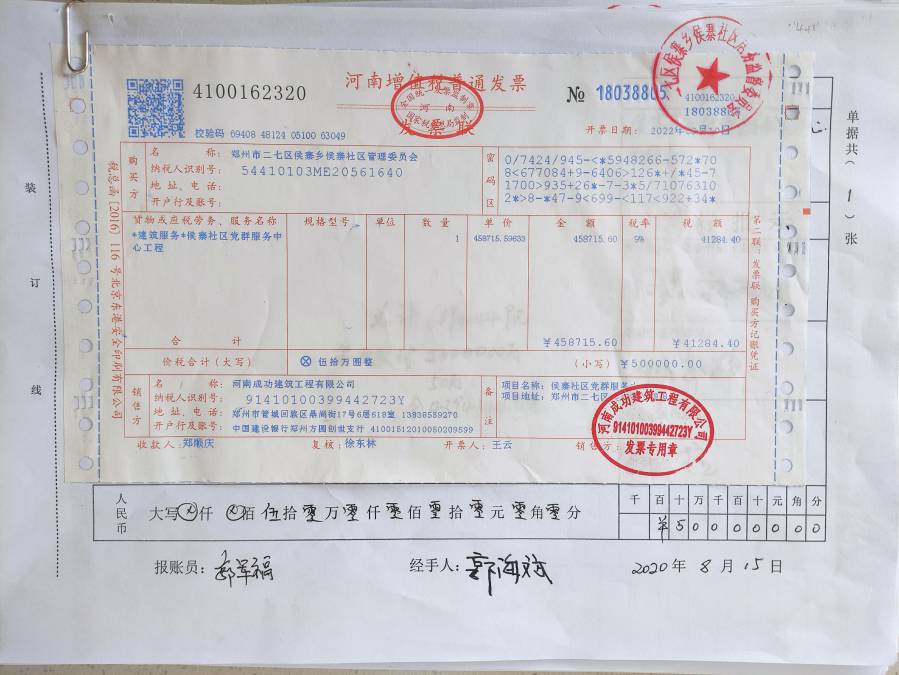 河南增值税普通发票
发票联
4100162320
№ 18038805
4100162320
校验码 69408 48124 05100 63049
开票日期：
单据共（1）张
装
订
线
税总函[2016]116号北京东港安全印刷有限公司
购买方
名 称：郑州市二七区侯寨乡侯寨社区管理委员会
纳税人识别号：54410103ME20561640
地 址、电 话：
开户行及账号：
密码区
0/7424/945-<*5948266-572*70
8<677084+9-6406>126*+/*45-7
1700>935+26*-7-3*5/71076310
2*>8-*47-9<699-<117<922+34*
货物或应税劳务、服务名称 规格型号 单位 数 量 单 价 金 额 税率 税 额
*建筑服务*侯寨社区党群服务中 1 458715.59633 458715.60 9% 41284.40
心工程
合 计 ￥458715.60 ￥41284.40
价税合计（大写） ⊗ 伍拾万圆整 （小写）￥500000.00
销售方
名 称：河南成功建筑工程有限公司
纳税人识别号：91410100399442723Y
地 址、电 话：郑州市管城回族区鼎尚街17号6层619室 13938559270
开户行及账号：中国建设银行郑州方圆创世支行 41001512010050209599
备注
项目名称：侯寨社区党群服务
项目地址：郑州市二七区
收款人：郑顺庆 复核：徐东林 开票人：王云 销售方：
第二联：发票联 购买方记账凭证
河南成功建筑工程有限公司
91410100399442723Y
发票专用章
人民币
大写⊗仟⊗佰伍拾零万零仟零佰零拾零元零角零分
千 百 十 万 千 百 十 元 角 分
￥ 5 0 0 0 0 0 0 0
报账员： 经手人： 2020年8月15日